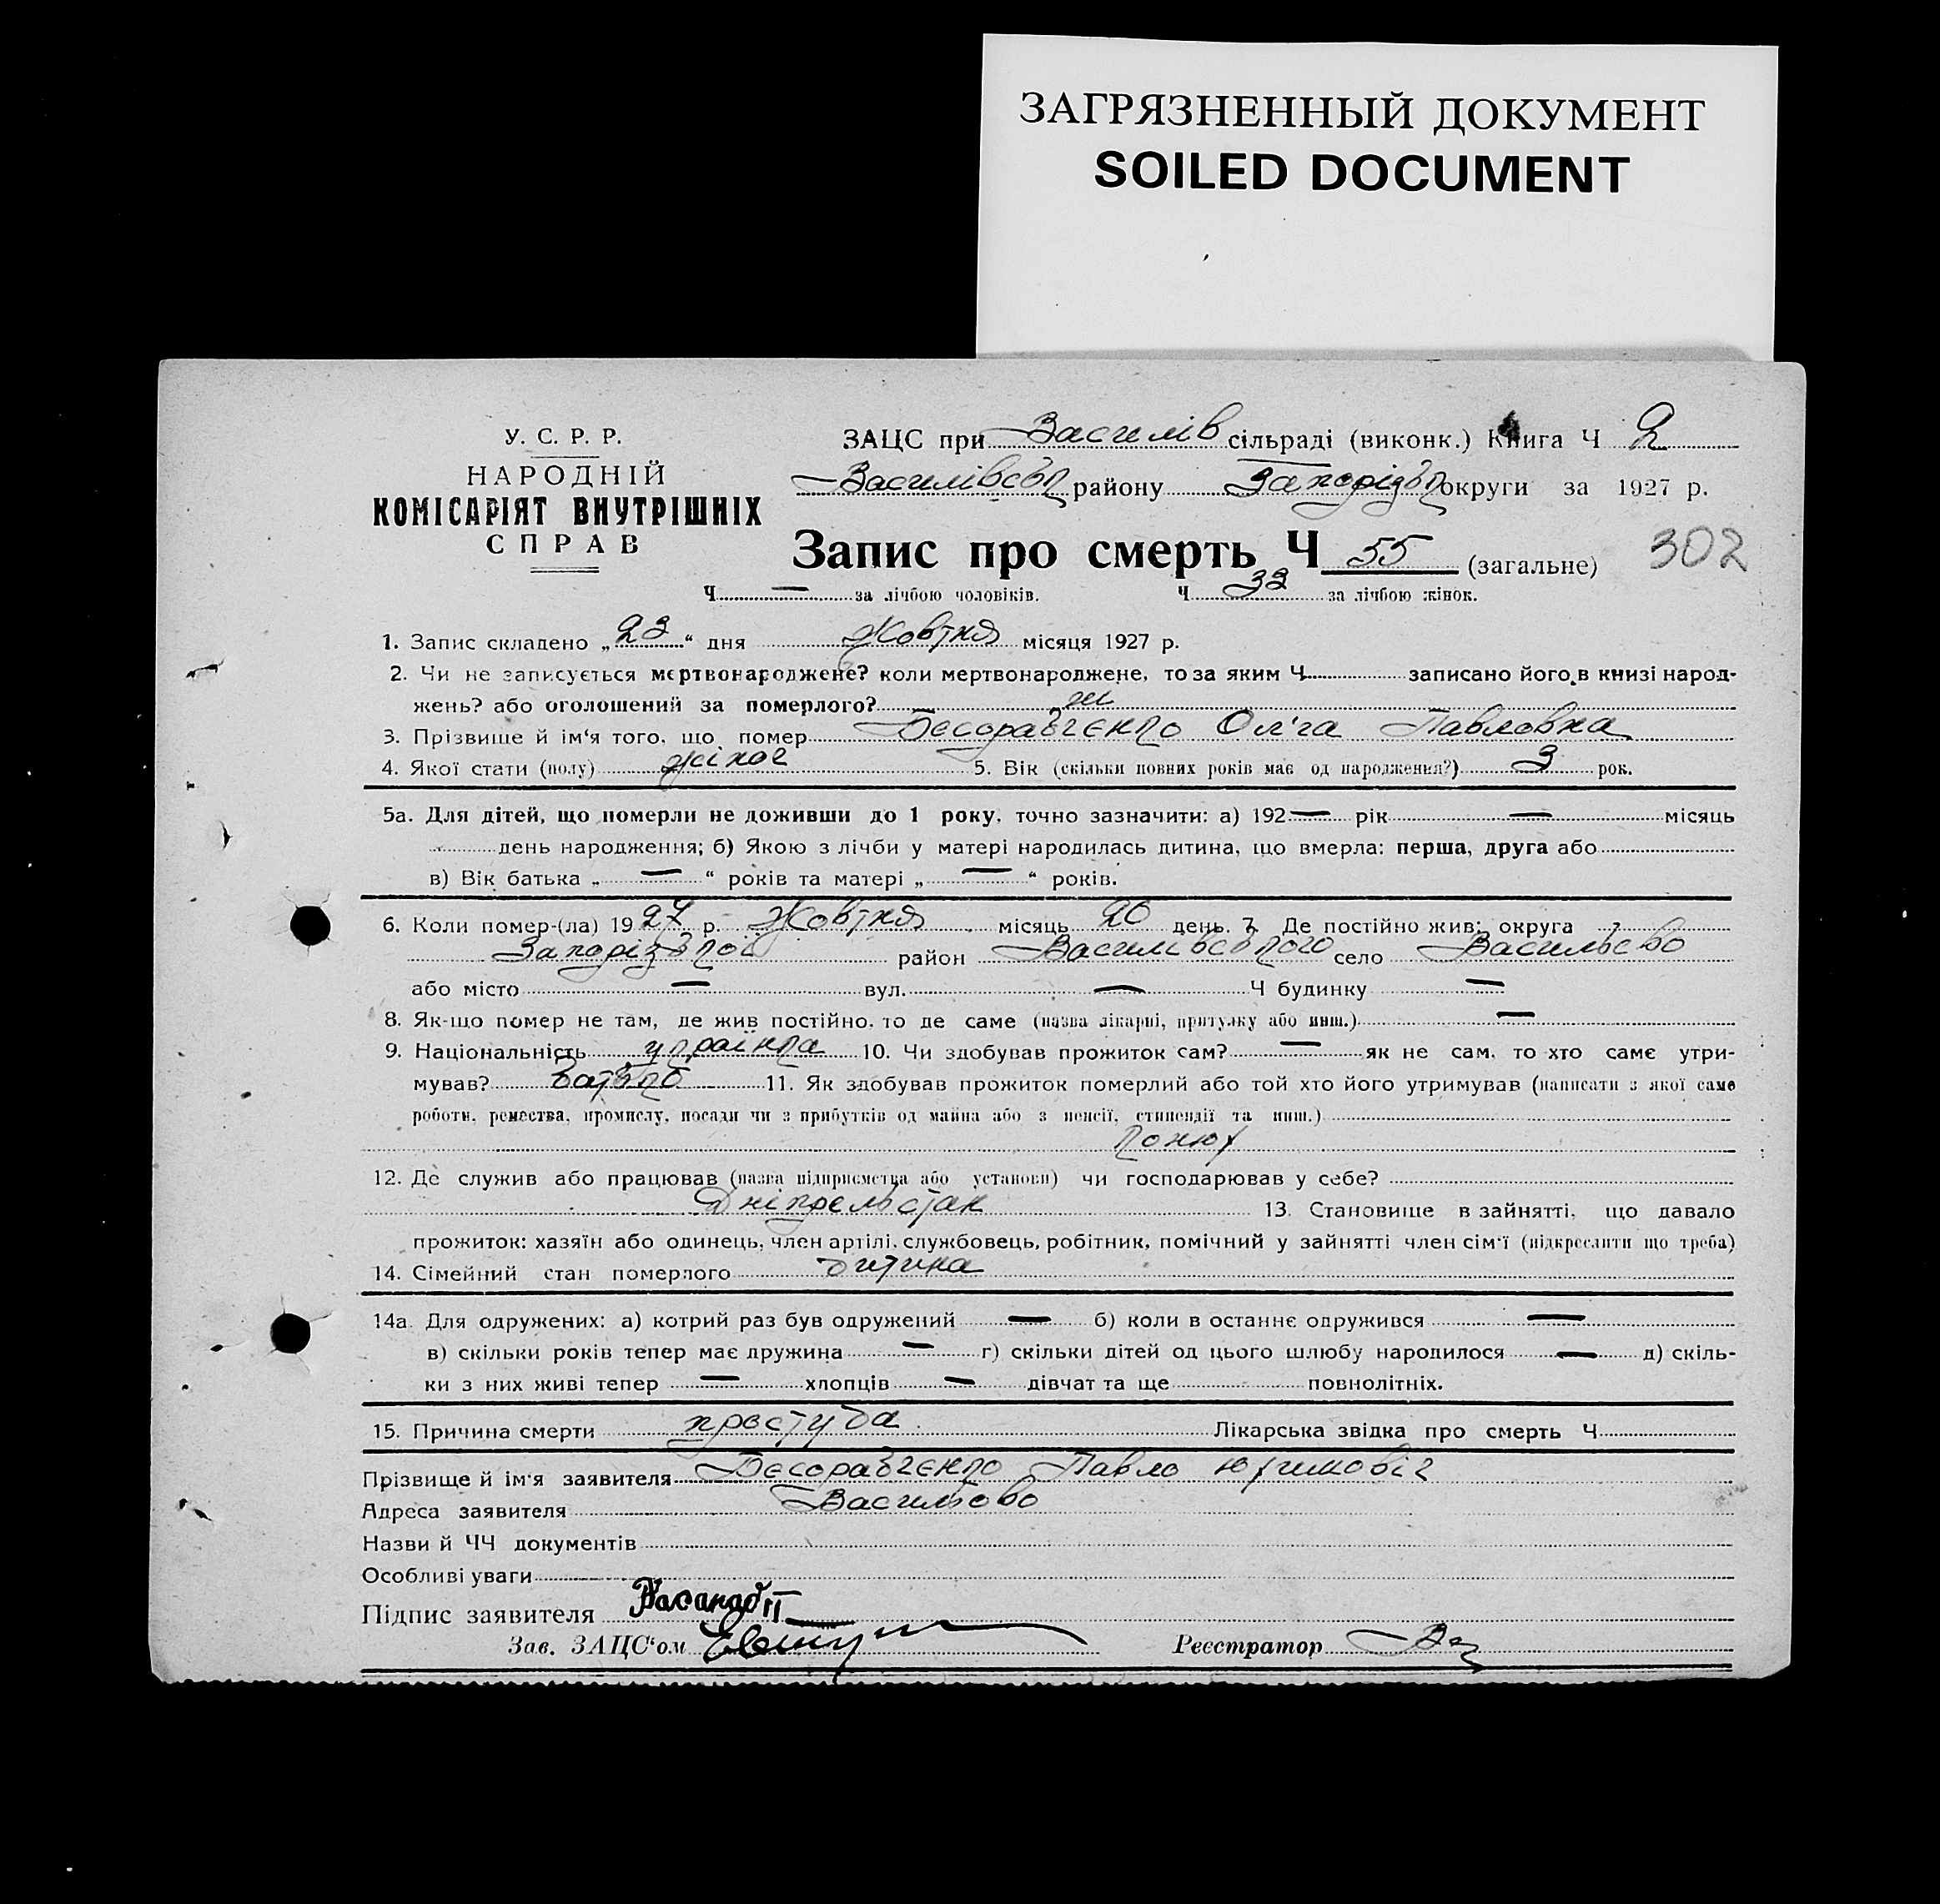 ЗАГРЯЗНЕННЫЙ ДОКУМЕНТ
SOILED DOCUMENT
У. С. Р. Р.
НАРОДНІЙ
КОМІСАРІЯТ ВНУТРІШНІХ
СПРАВ
ЗАЦС при Василів сільраді (виконк.) Книга Ч 2
Василівськ району Запорізьк округи за 1927 р.
Запис про смерть Ч 55 (загальне) 302
Ч — за лічбою чоловіків. Ч 32 за лічбою жінок.
1. Запис складено „23“ дня Жовтня місяця 1927 р.
2. Чи не записується мертвонароджене? коли мертвонароджене, то за яким Ч записано його в книзі народ-
жень? або оголошений за померлого? ні
3. Прізвище й ім'я того, що помер Бесорабченко Ол'га Павловна
4. Якої стати (полу) жіноч 5. Вік (скільки повних років має од народження?) 3 рок.
5а. Для дітей, що померли не доживши до 1 року, точно зазначити: а) 192— рік — місяць
день народження; б) Якою з лічби у матері народилась дитина, що вмерла: перша, друга або
в) Вік батька „ — “ років та матері „ — “ років.
6. Коли помер-(ла) 1927 р. Жовтня місяць 20 день. 7. Де постійно жив: округа
Запорізької район Василівського село Васильево
або місто — вул. — Ч будинку —
8. Як-що помер не там, де жив постійно, то де саме (назва лікарні, притулку або инш.) —
9. Національність українка 10. Чи здобував прожиток сам? — як не сам, то хто саме утри-
мував? батько 11. Як здобував прожиток померлий або той хто його утримував (написати з якої саме
роботи, ремества, промислу, посади чи з прибутків од майна або з пенсії, стипендії та инш.)
конюх
12. Де служив або працював (назва підприємства або установи) чи господарював у себе?
Дніпрельстан 13. Становище в зайнятті, що давало
прожиток: хазяїн або одинець, член артілі, службовець, робітник, помічний у зайнятті член сім'ї (підкреслити що треба)
14. Сімейний стан померлого дитина
14а. Для одружених: а) котрий раз був одружений — б) коли в останнє одружився —
в) скільки років тепер має дружина — г) скільки дітей од цього шлюбу народилося — д) скіль-
ки з них живі тепер — хлопців — дівчат та ще повнолітніх.
15. Причина смерти простуда Лікарська звідка про смерть Ч
Прізвище й ім'я заявителя Бесорабченко Павло Юхимовіч
Адреса заявителя Васильово
Назви й ЧЧ документів
Особливі уваги
Підпис заявителя
Зав. ЗАЦС'ом Реєстратор